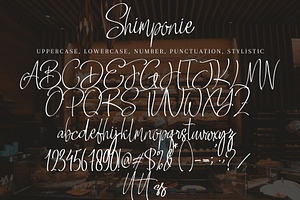 Shimponie
UPPERCASE, LOWERCASE, NUMBER, PUNCTUATION, STYLISTIC
ABCDEFGHIJKLMN
OPQRSTUVWXYZ
abcdefghijklmnopqrstuvwxyz